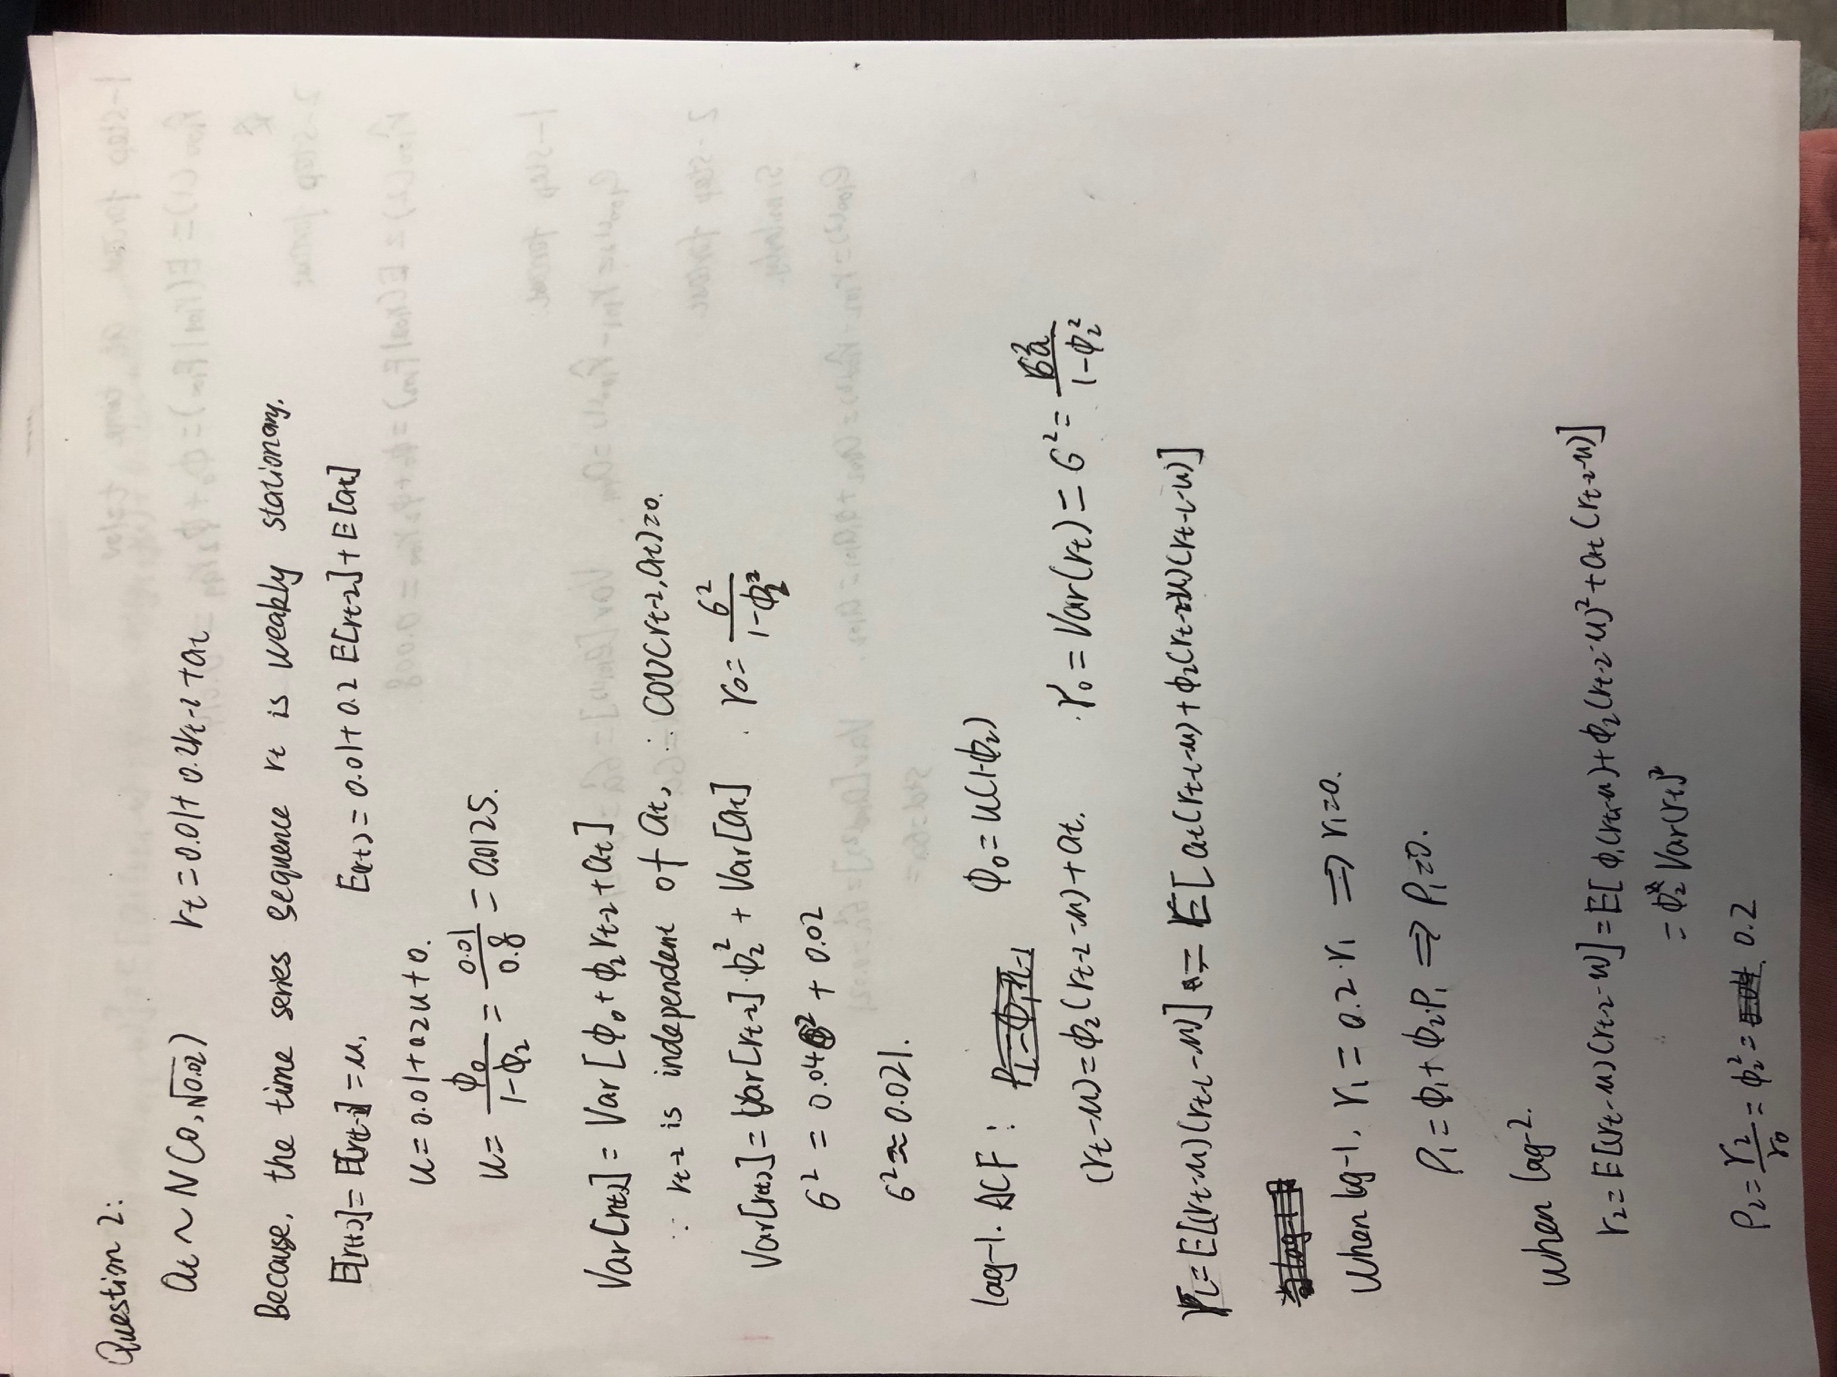 Question 2:
at ~ N(0, √0.02) rt = 0.01 + 0.2rt-2 + at
Because, the time series sequence rt is weakly stationary.
E[rt] = E[rt-2] = u, E(rt) = 0.01 + 0.2 E[rt-2] + E[at]
u = 0.01 + 0.2u + 0.
u = ϕ0/(1-ϕ2) = 0.01/0.8 = 0.0125.
Var[rt] = Var[ϕ0 + ϕ2 rt-2 + at]
∵ rt-2 is independent of at, ∴ cov(rt-2, at) = 0.
Var[rt] = Var[rt-2]·ϕ2² + Var[at] . r0 = 6²/(1-ϕ2²)
6² = 0.046² + 0.02
6² ≈ 0.021.
lag-1. ACF: ϕ0 = u(1-ϕ2)
(rt-u) = ϕ2(rt-2-u) + at. · r0 = Var(rt) = 6² = 6²a/(1-ϕ2²)
rl = E[(rt-u)(rt-l-u)] = E[at(rt-l-u) + ϕ2(rt-2-u)(rt-l-u)]
When lag-1, r1 = 0.2·r1 ⇒ r1=0.
ρ1 = ϕ1 + ϕ2ρ1 ⇒ ρ1=0.
when lag-2.
r2 = E[(rt-u)(rt-2-u)] = E[ϕ1(rt-u) + ϕ2(rt-2-u)² + at(rt-2-u)]
= ϕ2 Var(rt)
ρ2 = r2/r0 = ϕ2² = 0.2